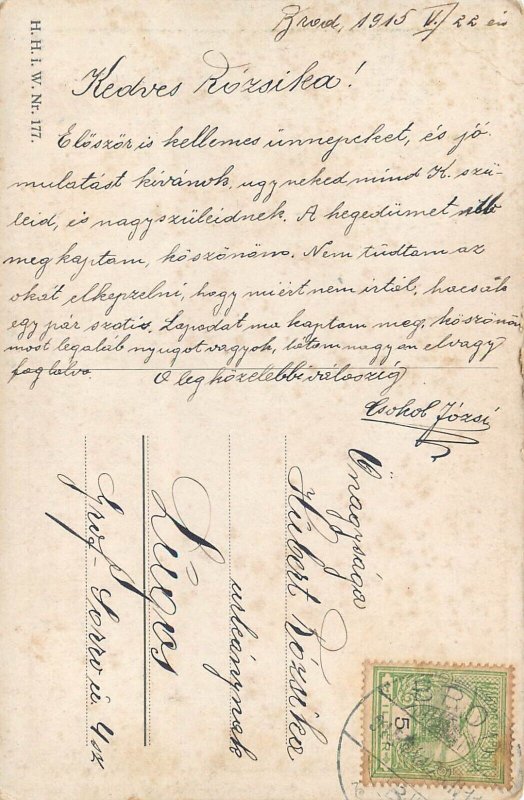 Brod, 1915 V./22 én
H. H. i. W. Nr. 177.
Kedves Rózsika!
Előszőr is kellemes ünnepeket, és jó
mulatást kivánok, ugy neked mind K. szü-
leid, és nagyszüleidnek. A hegedümet
meg kaptam, köszönöm. Nem tudtam az
okát elkepzelni, hogy miért nem irtál, hacsak
egy pár szótis. Lapodat ma kaptam meg, köszönöm
most legaláb nyugot vagyok, látom nagyon elvagy
foglalva.
A legközelebbi válaszig
Csokol Józsi
Őnagysága
Hubert Rózsika
urleánynak
Lugos
Grof
5